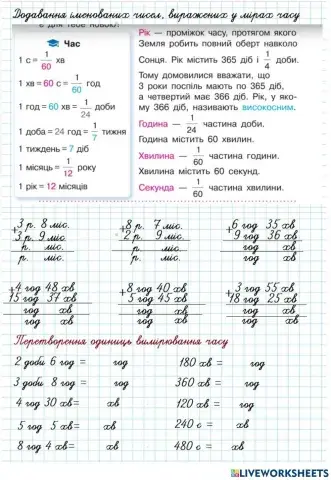 Додавання іменованих чисел, виражених у мірах часу
Час
1 с = 1/60 хв
1 хв = 60 с = 1/60 год
1 год = 60 хв = 1/24 доби
1 доба = 24 год = 1/7 тижня
1 тиждень = 7 діб
1 місяць = 1/12 року
1 рік = 12 місяців
Рік — проміжок часу, протягом якого
Земля робить повний оберт навколо
Сонця. Рік містить 365 діб і 1/4 доби.
Тому домовилися вважати, що
3 роки поспіль мають по 365 діб,
а четвертий має 366 діб. Рік, у яко-
му 366 діб, називають високосним.
Година — 1/24 частина доби.
Година містить 60 хвилин.
Хвилина — 1/60 частина години.
Хвилина містить 60 секунд.
Секунда — 1/60 частина хвилини.
+3 р. 8 міс.
3 р. 9 міс.
р. міс.
р. міс.
+8 р. 7 міс.
2 р. 9 міс.
р. міс.
р. міс.
+6 год 35 хв
9 год 36 хв
год хв
год хв
+4 год 48 хв
15 год 37 хв
год хв
год хв
+8 год 40 хв
5 год 45 хв
год хв
год хв
+3 год 55 хв
18 год 25 хв
год хв
год хв
Перетворення одиниць вимірювання часу
2 доби 6 год = год
3 доби 8 год = год
4 год 30 хв= хв
5 год 5 хв= хв
8 год 4 хв= хв
180 хв = год
360 хв = год
120 хв = год
240 с = хв
480 с = хв
LIVEWORKSHEETS